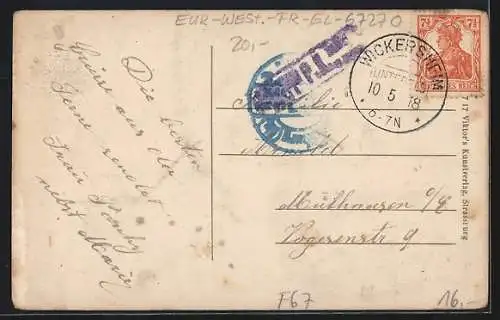 EUR-WEST.-FR-EL-67270
20,-
WICKERSHEIM
10 5 18
6-7N
7½ 7½
Die besten
Grüsse aus der
Ferne sendet
Frau
nebst
Familie
Mülhausen i/E
Vogesenstr 9
17 Viktor's Kunstverlag, Strassburg
F67
16,-